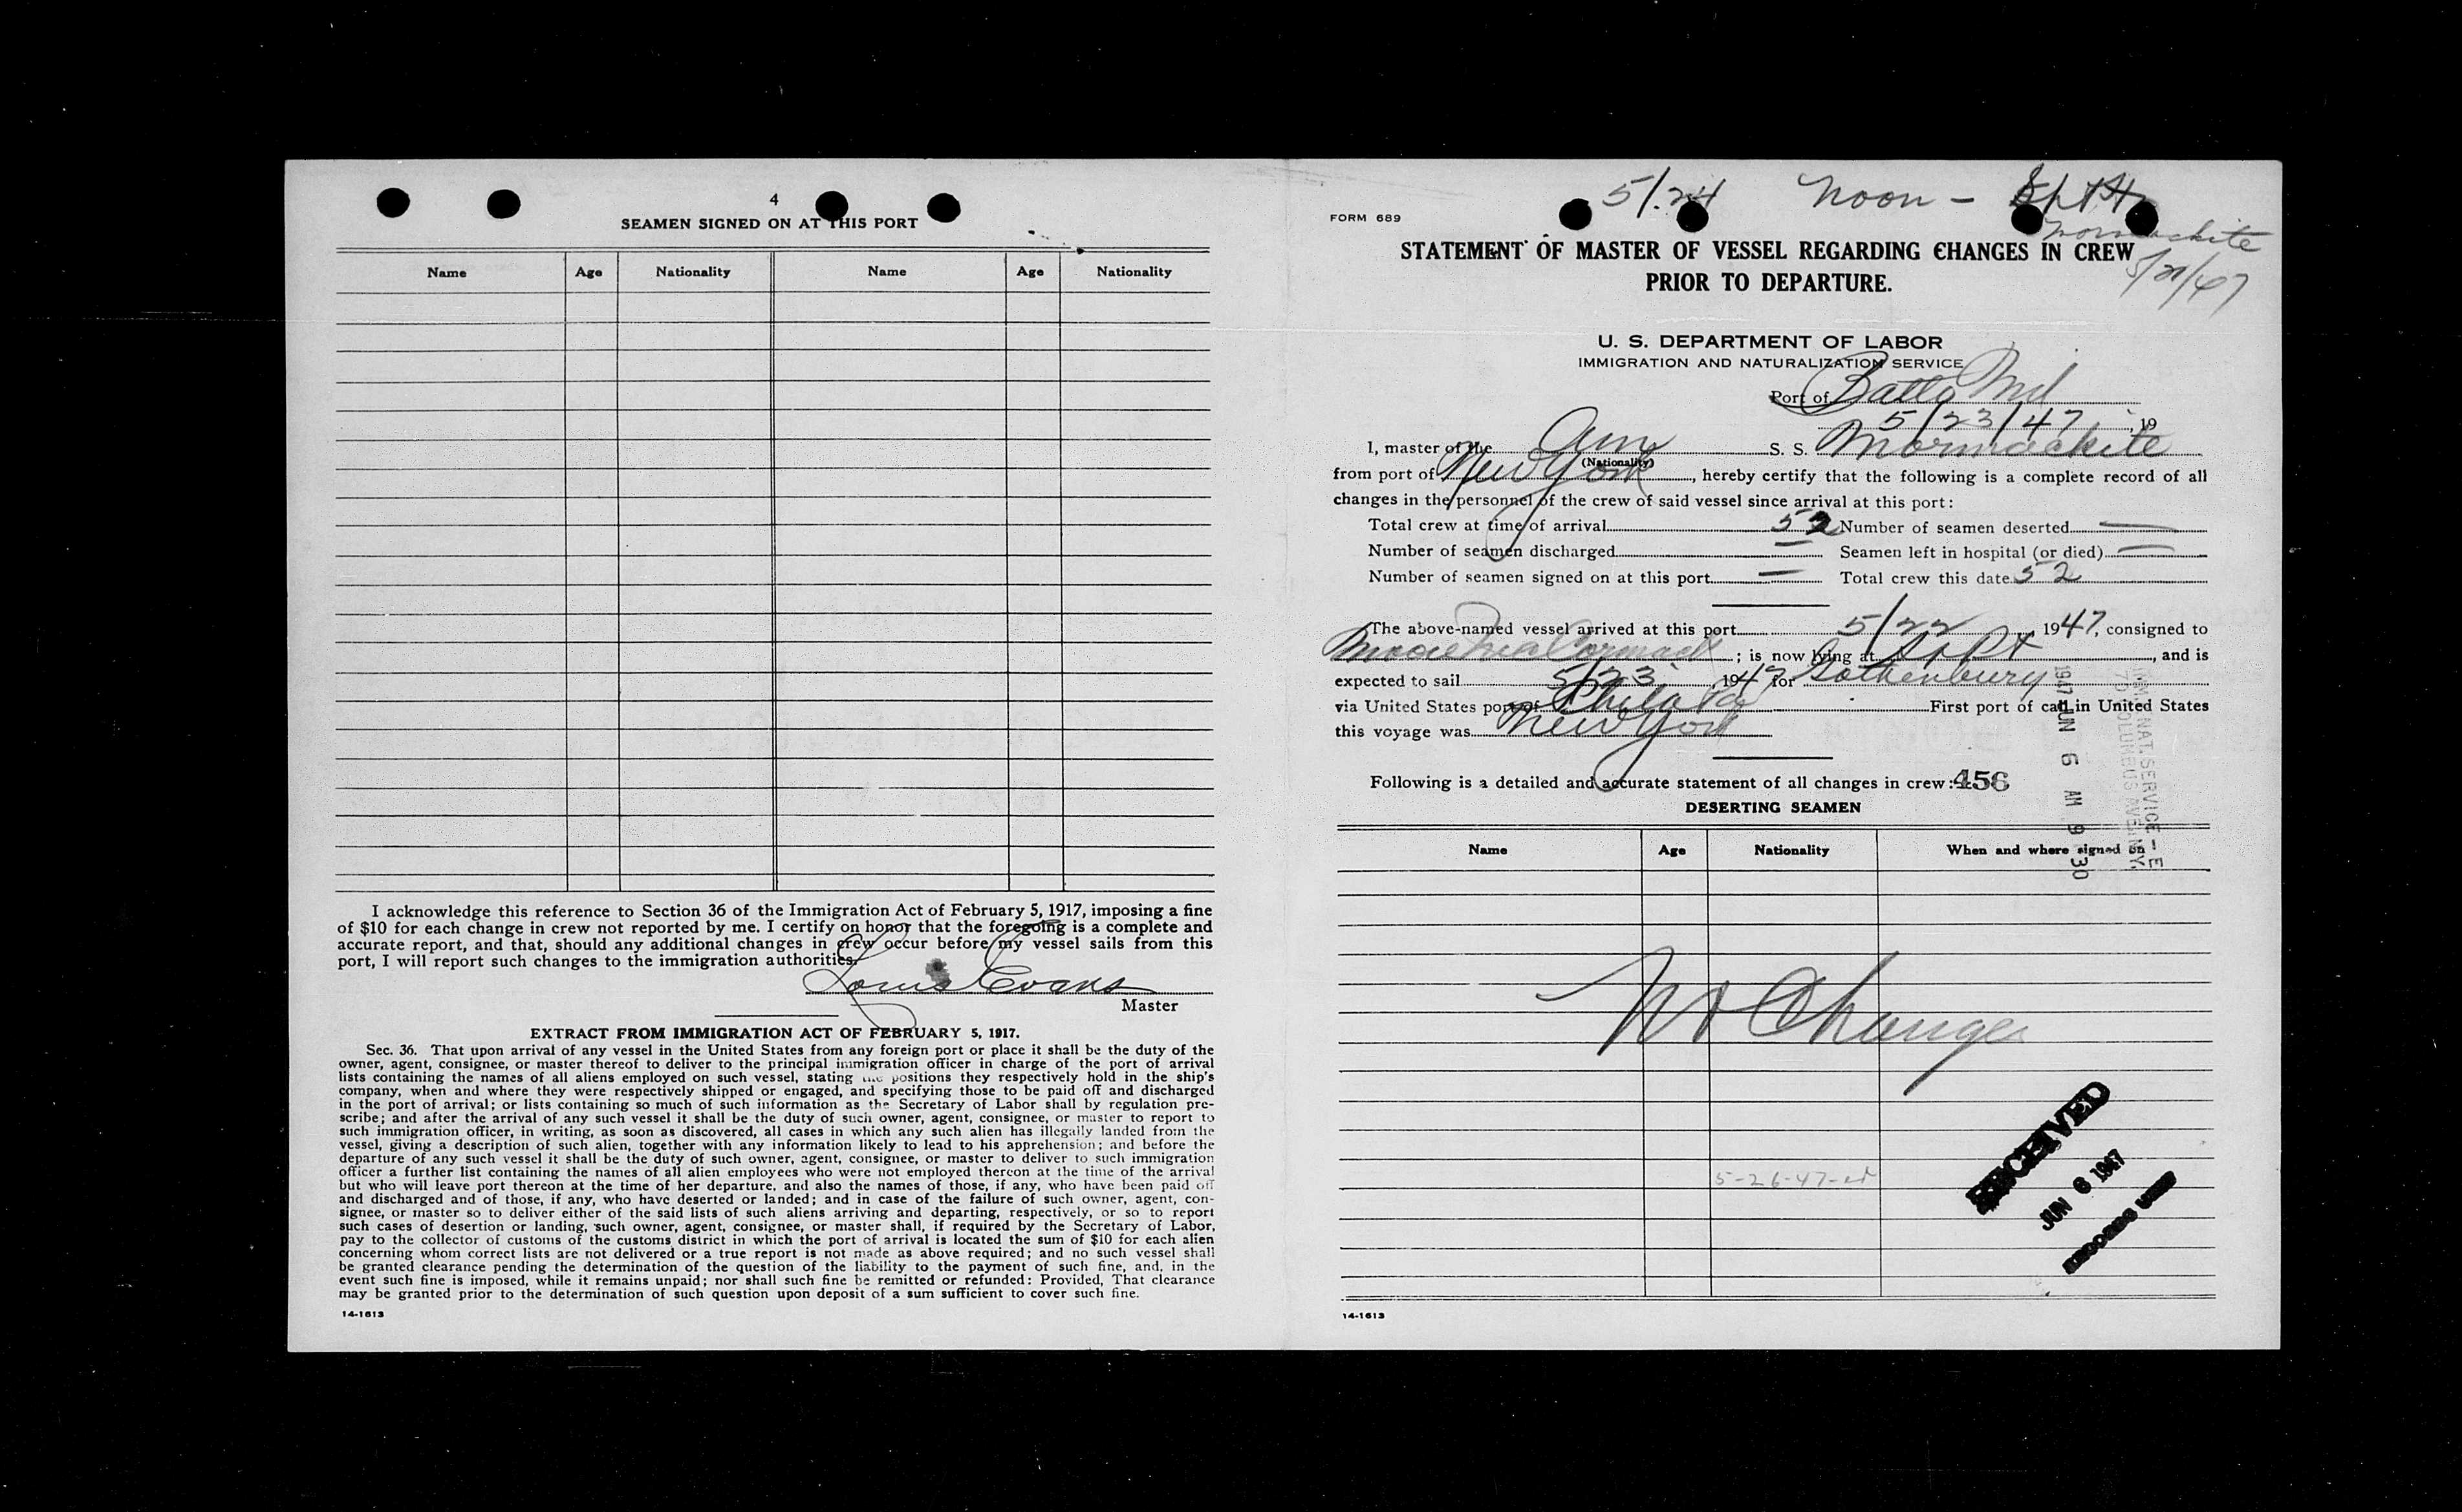 4
SEAMEN SIGNED ON AT THIS PORT
Name Age Nationality Name Age Nationality
I acknowledge this reference to Section 36 of the Immigration Act of February 5, 1917, imposing a fine
of $10 for each change in crew not reported by me. I certify on honor that the foregoing is a complete and
accurate report, and that, should any additional changes in crew occur before my vessel sails from this
port, I will report such changes to the immigration authorities.
Louis Evans
Master
EXTRACT FROM IMMIGRATION ACT OF FEBRUARY 5, 1917.
Sec. 36. That upon arrival of any vessel in the United States from any foreign port or place it shall be the duty of the
owner, agent, consignee, or master thereof to deliver to the principal immigration officer in charge of the port of arrival
lists containing the names of all aliens employed on such vessel, stating the positions they respectively hold in the ship's
company, when and where they were respectively shipped or engaged, and specifying those to be paid off and discharged
in the port of arrival; or lists containing so much of such information as the Secretary of Labor shall by regulation pre-
scribe; and after the arrival of any such vessel it shall be the duty of such owner, agent, consignee, or master to report to
such immigration officer, in writing, as soon as discovered, all cases in which any such alien has illegally landed from the
vessel, giving a description of such alien, together with any information likely to lead to his apprehension; and before the
departure of any such vessel it shall be the duty of such owner, agent, consignee, or master to deliver to such immigration
officer a further list containing the names of all alien employees who were not employed thereon at the time of the arrival
but who will leave port thereon at the time of her departure, and also the names of those, if any, who have been paid off
and discharged and of those, if any, who have deserted or landed; and in case of the failure of such owner, agent, con-
signee, or master so to deliver either of the said lists of such aliens arriving and departing, respectively, or so to report
such cases of desertion or landing, such owner, agent, consignee, or master shall, if required by the Secretary of Labor,
pay to the collector of customs of the customs district in which the port of arrival is located the sum of $10 for each alien
concerning whom correct lists are not delivered or a true report is not made as above required; and no such vessel shall
be granted clearance pending the determination of the question of the liability to the payment of such fine, and, in the
event such fine is imposed, while it remains unpaid; nor shall such fine be remitted or refunded: Provided, That clearance
may be granted prior to the determination of such question upon deposit of a sum sufficient to cover such fine.
14-1613
5/24 Noon -
FORM 689
Mormackite
STATEMENT OF MASTER OF VESSEL REGARDING CHANGES IN CREW
PRIOR TO DEPARTURE.
U. S. DEPARTMENT OF LABOR
IMMIGRATION AND NATURALIZATION SERVICE
Port of Balto Md
5/23/47, 19
I, master of the Am S. S. Mormackite
(Nationality)
from port of New York, hereby certify that the following is a complete record of all
changes in the personnel of the crew of said vessel since arrival at this port:
Total crew at time of arrival 52 Number of seamen deserted —
Number of seamen discharged — Seamen left in hospital (or died) —
Number of seamen signed on at this port — Total crew this date 52
The above-named vessel arrived at this port 5/22, 1947, consigned to
Moore McCormack; is now lying at Sp Pt, and is
expected to sail 5/23, 1947 for Gothenburg
via United States port of Phila Pa First port of call in United States
this voyage was New York
Following is a detailed and accurate statement of all changes in crew: 456
DESERTING SEAMEN
Name Age Nationality When and where signed on
1947 JUN 6 AM 9 30
No Changes
5-26-47
RECEIVED
JUN 6 1947
14-1613